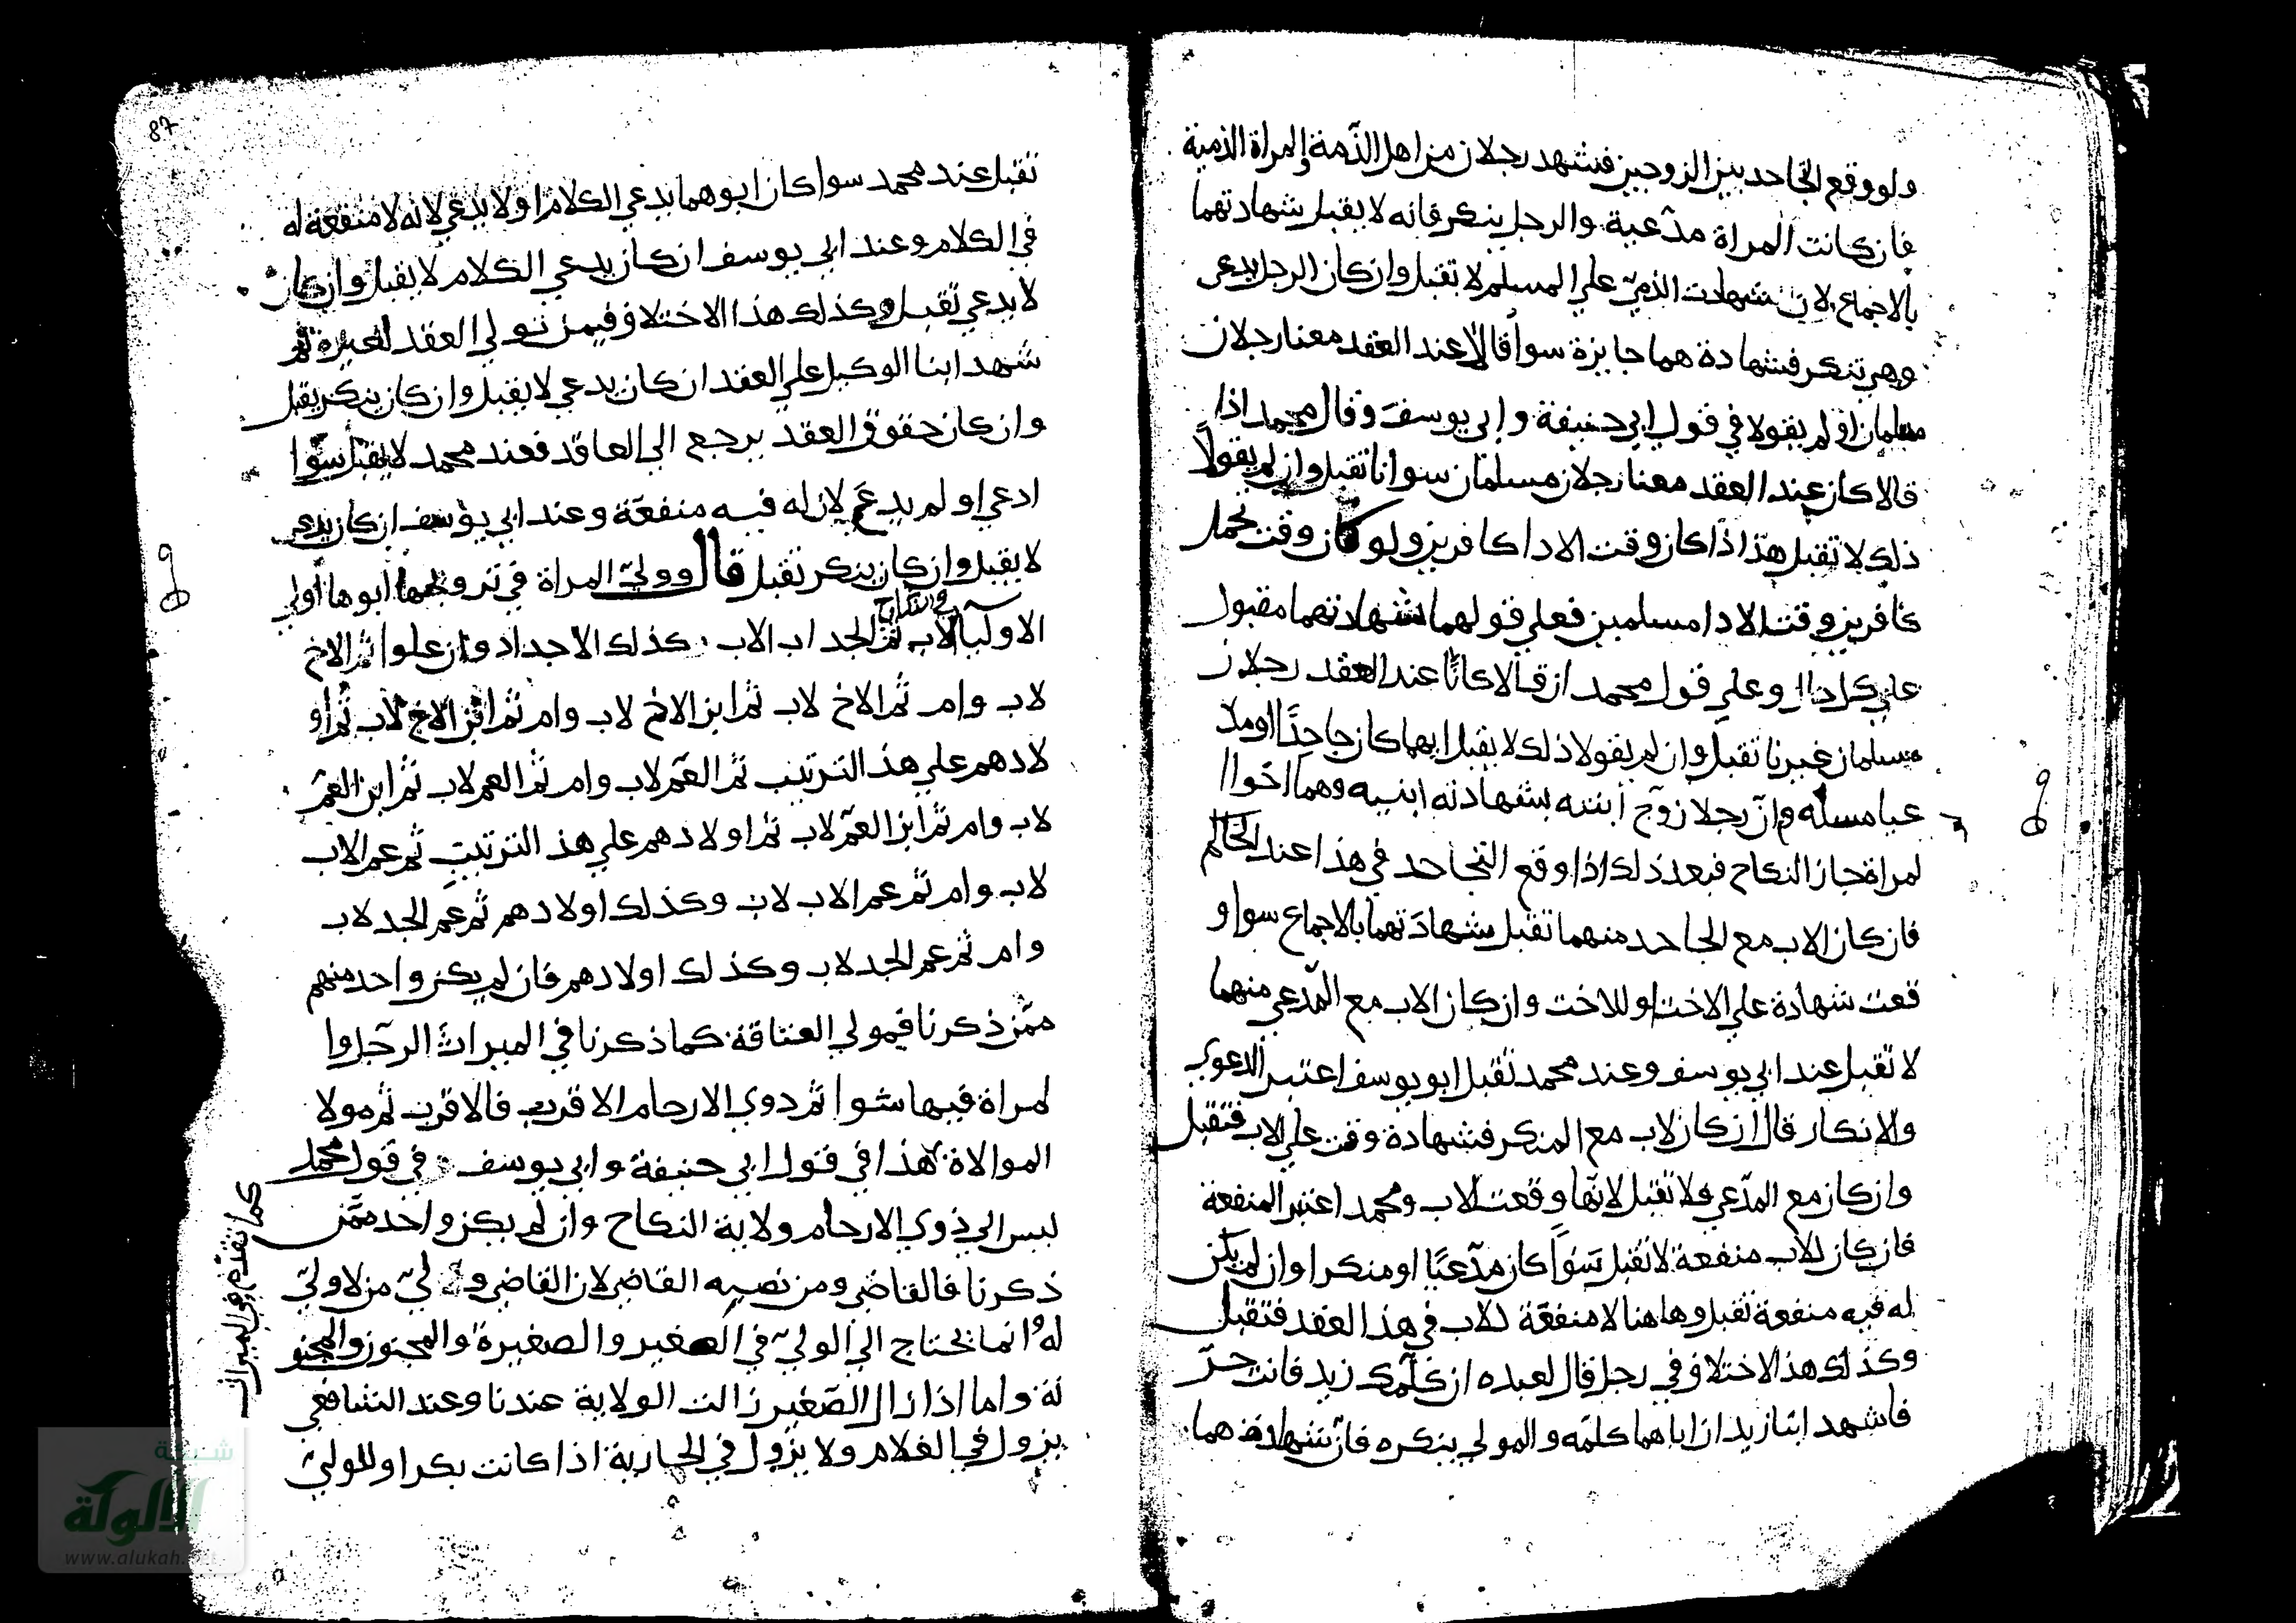 ولو وقع التجاحد بين الزوجين فشهد رجلان من اهل الذمة والمراة الذمية
فان كانت المراة مدعية والرجل ينكر فانه لا يقبل شهادتهما
بالاجماع لان شهادت الذمي علي المسلم لا تقبل وان كان الرجل يدعي
وهي تنكر فشهادة هما جايزة سوا قالا عند العقد معنا رجلان
مسلمان او لم يقولا في قول ابي حنيفة و ابي يوسف وقال محمد اذا
قالا كان عند العقد معنا رجلان مسلمان سوانا تقبل وان لم يقولا
ذلك لا تقبل هذا اذا كان وقت الادا كافرين ولو كان وقت تحمل
كافرين وقت الادا مسلمين فعلي قولهما شهادتهما مقبول
علي كل حال وعلي قول محمد ان قالا كانا عند العقد رجلان
مسلمان غيرنا تقبل وان لم يقولا ذلك لا يقبل ايهما كان جاحدا او مد
عيا مسله وان رجلا زوج ابنته بشهادته ابنيه وهما اخوا ا
لمراة جاز النكاح فبعد ذلك اذا وقع التجاحد في هذا عند الحاكم
فان كان الاب مع الجاحد منهما تقبل شهادتهما بالاجماع سوا و
قعت شهادة علي الاخت او للاخت وان كان الاب مع المدعي منهما
لا تقبل عند ابي يوسف وعند محمد تقبل ابو يوسف اعتبر الدعوي
والانكار قال ان كان لاب مع المنكر فشهادة وقت علي الاب فتقبل
وان كان مع المدعي فلا تقبل لانها وقعت للاب ومحمد اعتبر المنفعة
فان كان للاب منفعة لا تقبل سوا كان مدعيا او منكرا وان لم يكن
له فيه منفعة تقبل وهاهنا لا منفعة للاب في هذا العقد فتقبل
وكذلك هذ الاختلاف في رجل قال لعبده ان كلمك زيد فانت حر
فاشهد ابنا زيد ان اباهما كلمه و المولي ينكره فان شهادة هما
87
تقبل عند محمد سوا كان ابوهما يدعي الكلام او لا يدعي لانه لا منفعة له
في الكلام وعند ابي يوسف ان كان يدعي الكلام لا يقبل وان كان
لا يدعي تقبل وكذلك هذا الاختلاف فيمن تولي العقد لغيره ثم
شهد ابنا الوكيل علي العقد ان كان يدعي لا يقبل وان كان ينكر يقبل
وان كان حقوق العقد يرجع الي العاقد فعند محمد لا يقبل سوا
ادعي او لم يدعي لان له فيه منفعة وعند ابي يوسف ان كان يدعي
لا يقبل وان كان ينكر تقبل قال وولي المراة في تزويجها ابوها اولي
الاوليا الاب ثم الجد اب الاب كذلك الاجداد وان علوا ثم الاخ
في النكاح
لاب وام ثم الاخ لاب ثم ابن الاخ لاب وام ثم ابن الاخ لاب ثم او
لادهم علي هذ الترتيب ثم العم لاب وام ثم العم لاب ثم ابن العم
لاب وام ثم ابن العم لاب ثم اولادهم علي هذ الترتيب ثم عم الاب
لاب وام ثم عم الاب لاب وكذلك اولادهم ثم عم الجد لاب
وام ثم عم الجد لاب وكذلك اولادهم فان لم يكن واحد منهم
ممن ذكرنا فمولي العتاقة كما ذكرنا في الميراث الرجل وا
لمراة فيها سوا ثم دوي الارحام الاقرب فالاقرب ثم مولا
الموالاة هذا في قول ابي حنيفة وابي يوسف في قول محمد
ليس الي ذوي الارحام ولاية النكاح وان لم يكن واحد ممن
ذكرنا فالقاضي ومن نصبه القاضي لان القاضي ولي من لا ولي
له وانما يحتاج الي الولي في الصغير والصغيرة والمجنون والمجنو
نة واما اذا زال الصغير زالت الولاية عندنا وعند الشافعي
يزول في الغلام ولا يزول في الجارية اذا كانت بكرا وللولي
كما تقدم في الميراث
شبكة
الألوكة
www.alukah.net